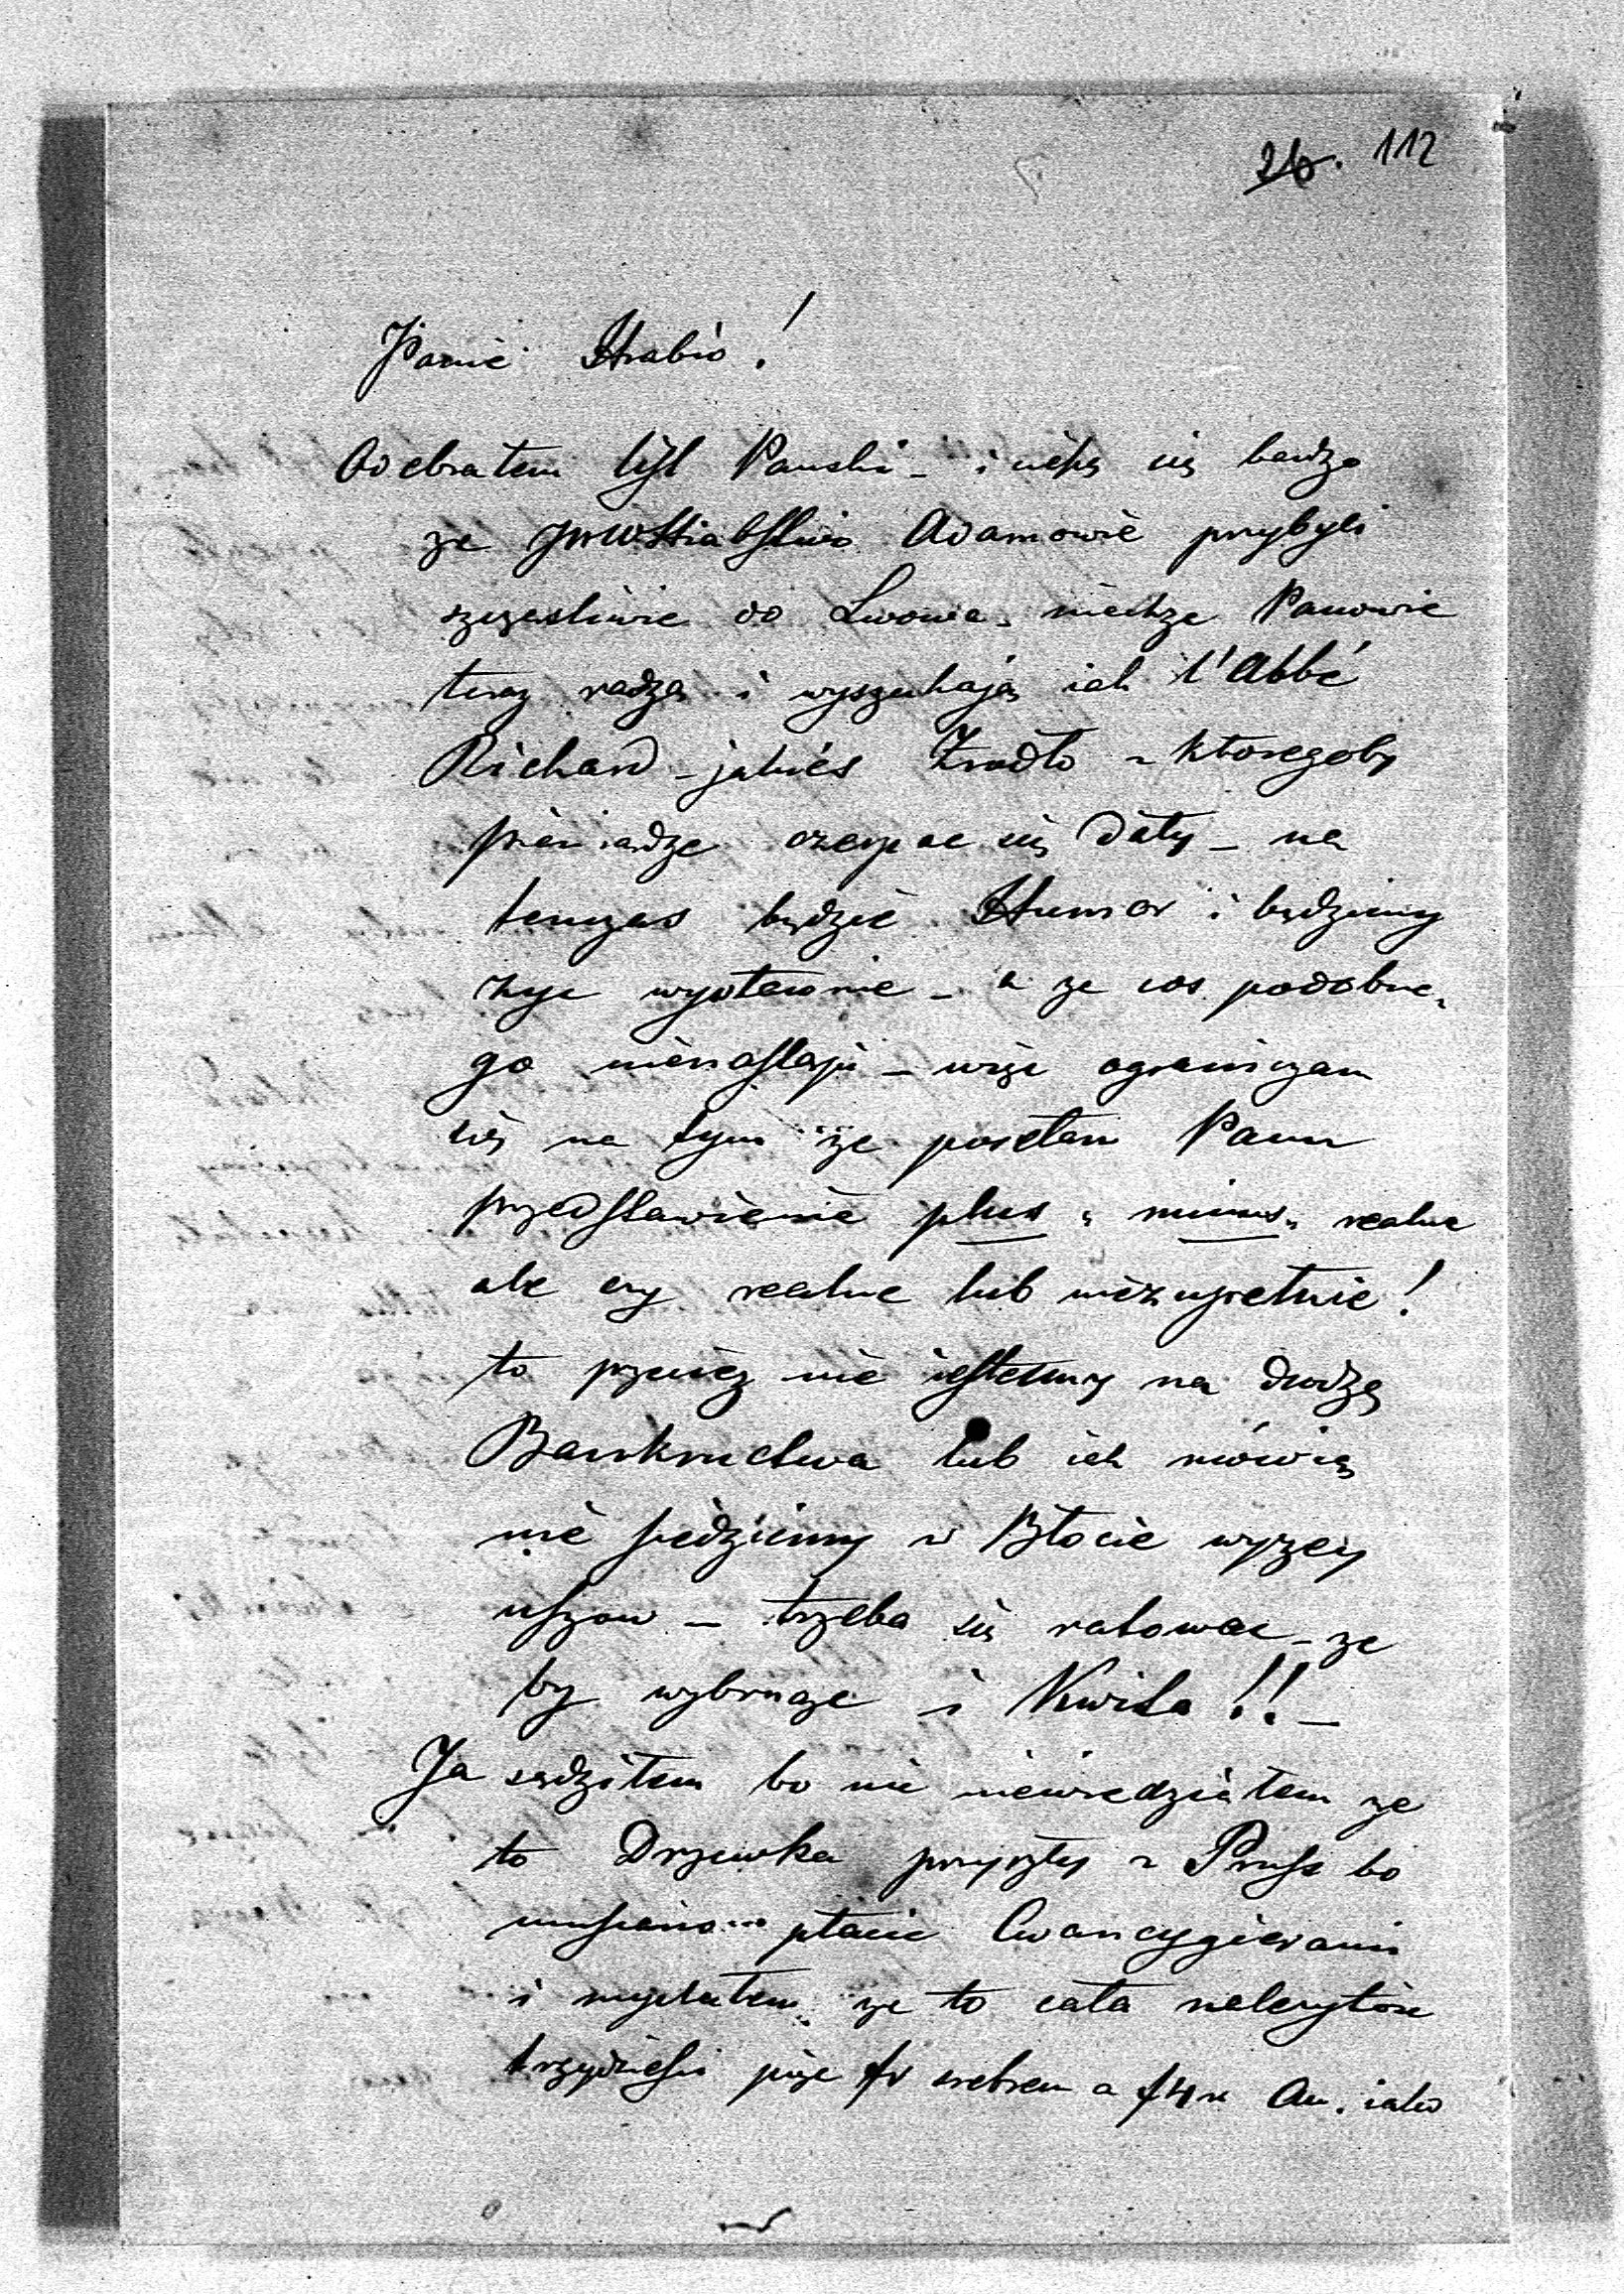 26. 112
Panie Hrabio!
Odebrałem list Panski – i ciešę się bardzo
ze JWWHrabstwo Adamowie przybyli
szczesliwie do Lwowa, niechze Panowie
teraz radzą i wyszukają iak l'Abbé
Richard – jakiés Zrodło z ktoregoby
pieniadze czerpac się dały – na
tenczas będzie Humor i będziemy
zyc wystawnie – a ze cos podobne,
go nienastąpi – więc ograniczam
się na tym ze posełam Panu
przedstawienie plus, minus, realne
ale czy realne lub niezupełnie!
to przeciez nie iestesmy na drodzę
Bankructwa lub iak mówią
nie siedziemy w Błocie wyzey
uszow – trzeba się ratowac – ze
by wybrnąc i Kwita!! –
Ja sądziłem bo nic niewiedziałem ze
to Drzewka przyszły z Pruss bo
musiano płacic Cwancygierami
i myslałem ze to cała nalezytośc
trzydziesci pięc fr srebrem a f4x Au. iako